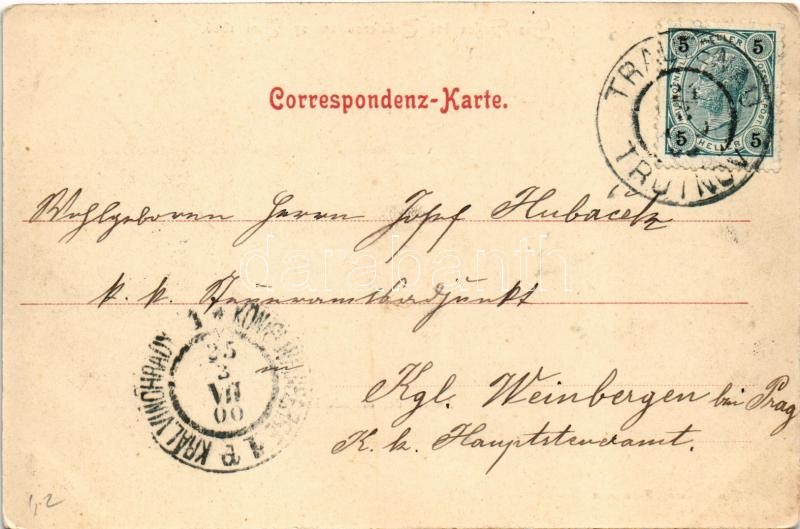 5 HELLER 5
5 HELLER 5
TRAUTENAU
TRUTNOV
Correspondenz-Karte.
Wohlgeboren Herrn Josef Hubáček
k. k. Steueramtsadjunkt
in
Kgl. Weinbergen bei Prag
K. k. Hauptsteueramt.
1 KÖNIGL. WEINBERGE 1
25
3
VII
00
KRÁL. VINOHRADY
darabanth
1,2